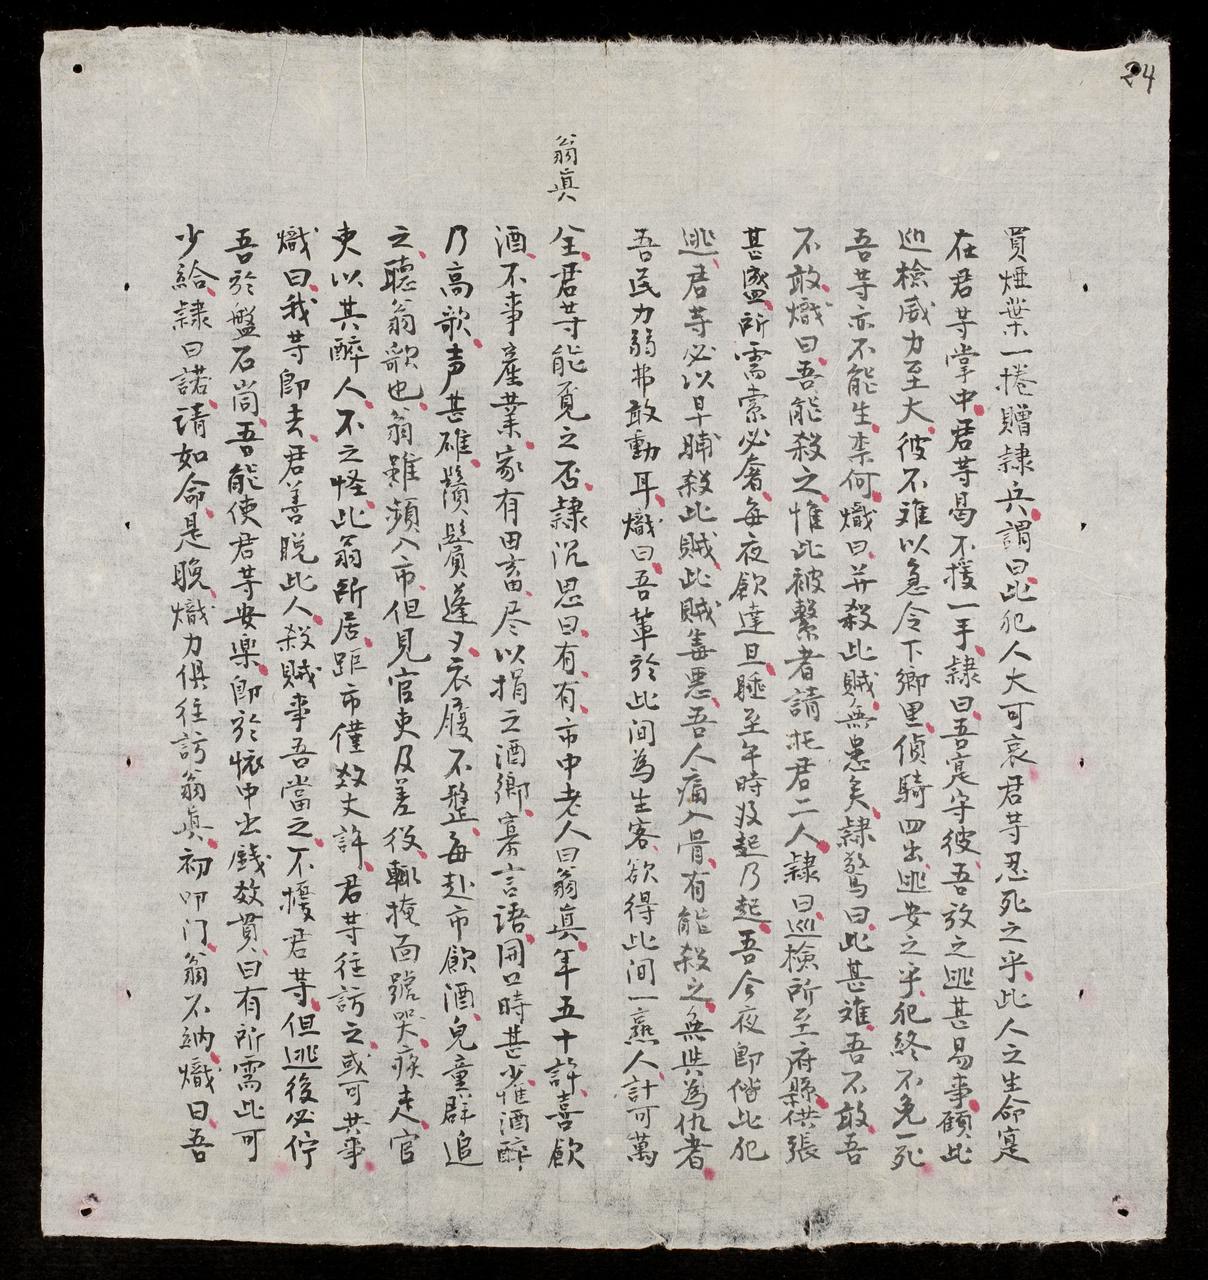 24
買烟葉一捲贈隷兵謂曰此犯人大可哀君等忍死之乎此人之生命寔
在君等掌中君等曷不援一手隷曰吾寔守彼吾放之逃甚易事顧此
巡檢威力至大彼不难以急令下鄉里偵騎四出逃安之乎犯終不免一死
吾等亦不能生柰何熾曰并殺此賊無患矣隷驚曰此甚难吾不敢吾
不敢熾曰吾能殺之惟此被繫者請托君二人隷曰巡檢所至府縣供張
甚盛所需索必奢每夜飲達旦睡至午時及起乃起吾今夜即偕此犯
逃君等必以早晡殺此賊此賊毒悪吾人痛入骨有能殺之無與為仇者
吾民力弱弗敢動耳熾曰吾輩於此间為生客欲得此间一熟人計可萬
翁真
全君等能覓之否隷沉思曰有有市中老人曰翁真年五十許喜飲
酒不事產業家有田畜尽以捐之酒鄉寡言語開口時甚少惟酒醉
乃高歌声甚雄鬚鬢蓬歹衣履不整每赴市飲酒兒童群追
之聽翁歌也翁雖頻入市但見官吏及差役輒掩面號哭疾走官
吏以其醉人不之怪此翁所居距市僅数丈許君等往訪之或可共事
熾曰我等即去君善脱此人殺賊事吾當之不擾君等但逃後必佇
吾於盤石崗吾能使君等安楽即於懷中出錢数貫曰有所需此可
少給隷曰諾請如命是晚熾力俱往訪翁真初叩门翁不納熾曰吾